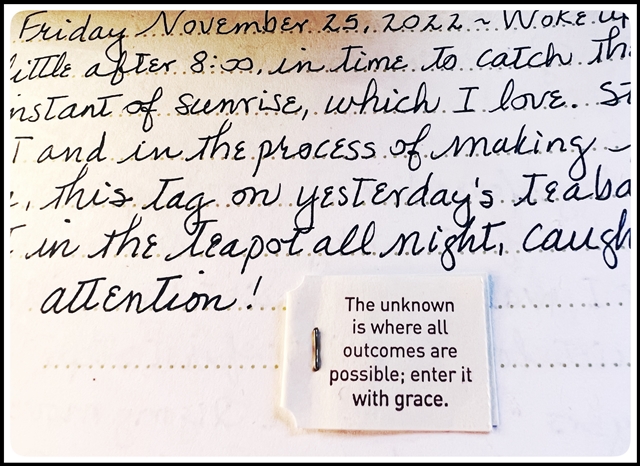 Friday November 25, 2022 ~ Woke up
little after 8:00, in time to catch th
instant of sunrise, which I love. St
T and in the process of making
, this tag on yesterday's teaba
in the teapot all night, caugh
attention!
The unknown
is where all
outcomes are
possible; enter it
with grace.